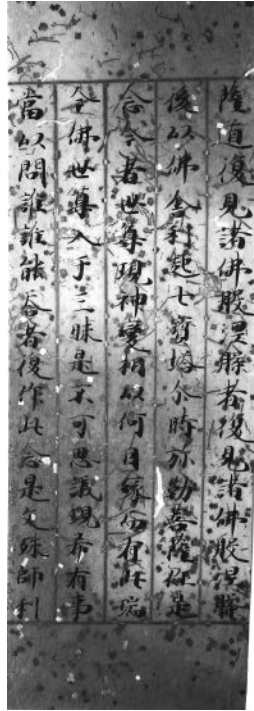 薩道復見諸佛般涅槃者復見諸佛般涅槃
後以佛舍利起七寶塔尒時弥勒菩薩作是
念今者世尊現神變相以何因緣而有此瑞
今佛世尊入于三昧是不可思議現希有事
當以問誰誰能荅者復作此念是文殊師利